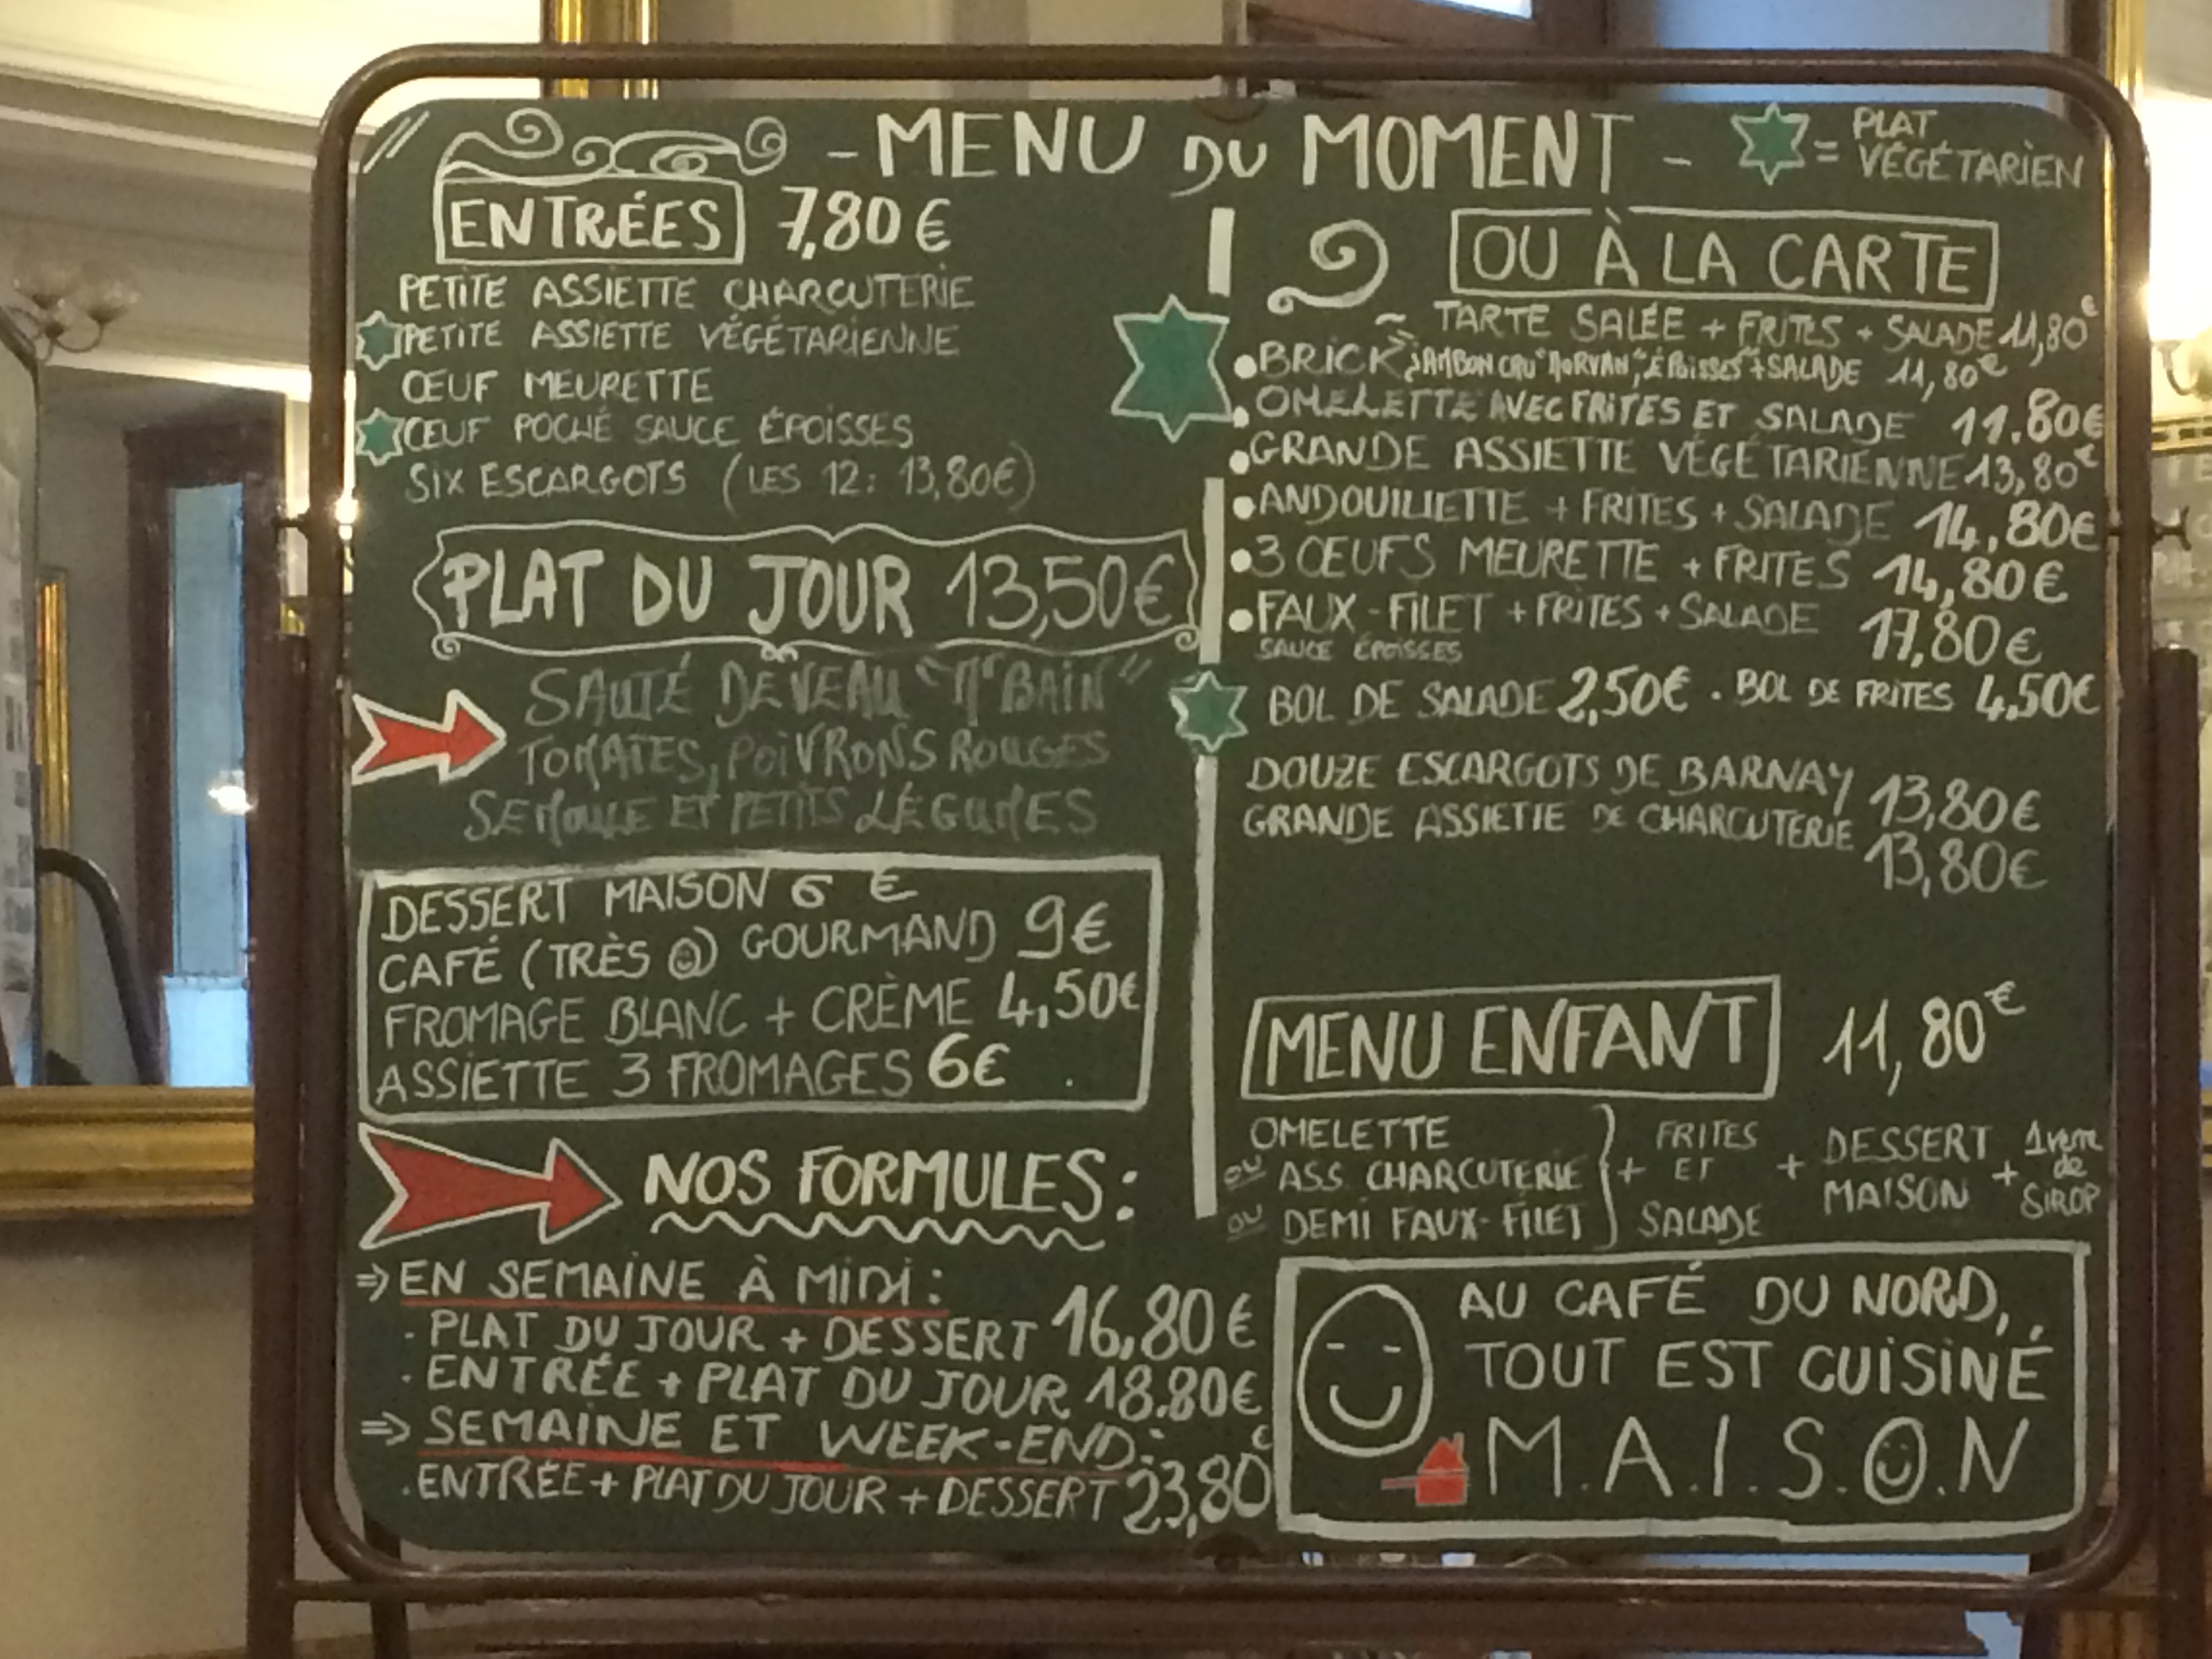 - MENU DU MOMENT -
= PLAT VÉGÉTARIEN
ENTRÉES 7,80 €
PETITE ASSIETTE CHARCUTERIE
PETITE ASSIETTE VÉGÉTARIENNE
ŒUF MEURETTE
ŒUF POCHÉ SAUCE ÉPOISSES
SIX ESCARGOTS (LES 12: 13,80€)
PLAT DU JOUR 13,50€
SAUTÉ DE VEAU
TOMATES, POIVRONS ROUGES
SEMOULE ET PETITS LÉGUMES
DESSERT MAISON 6 €
CAFÉ (TRÈS ☺) GOURMAND 9€
FROMAGE BLANC + CRÈME 4,50€
ASSIETTE 3 FROMAGES 6€
NOS FORMULES :
=> EN SEMAINE À MIDI :
. PLAT DU JOUR + DESSERT 16,80 €
. ENTRÉE + PLAT DU JOUR 18.80€
=> SEMAINE ET WEEK-END :
. ENTRÉE + PLAT DU JOUR + DESSERT 23,80€
OU À LA CARTE
~ TARTE SALÉE + FRITES + SALADE 11,80€
• BRICK JAMBON CRU "MORVAN", "ÉPOISSES" + SALADE 11,80€
• OMELETTE AVEC FRITES ET SALADE 11.80€
• GRANDE ASSIETTE VÉGÉTARIENNE 13,80€
• ANDOUILLETTE + FRITES + SALADE 14,80€
• 3 ŒUFS MEURETTE + FRITES 14,80€
• FAUX-FILET + FRITES + SALADE 17,80€
SAUCE ÉPOISSES
BOL DE SALADE 2,50€ . BOL DE FRITES 4,50€
DOUZE ESCARGOTS DE BARNAY 13,80€
GRANDE ASSIETTE DE CHARCUTERIE 13,80€
MENU ENFANT 11,80€
OMELETTE
OU ASS. CHARCUTERIE
OU DEMI FAUX-FILET
+ FRITES ET SALADE + DESSERT MAISON + 1 verre de SIROP
AU CAFÉ DU NORD,
TOUT EST CUISINÉ
M.A.I.S.O.N